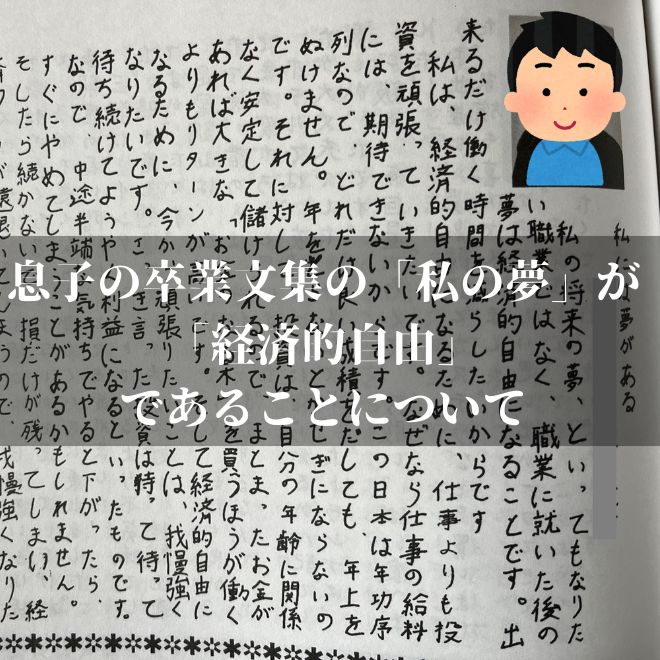 息子の卒業文集の「私の夢」が
「経済的自由」
であることについて
私には夢がある
私の将来の夢、といってもなりた
い職業とはなく、職業に就いた後の
夢は経済的自由になることです。出
来るだけ働く時間を減らしたいからです
私は、経済的自由になるために、仕事よりも投
資を頑張っていきたいです。なぜなら仕事の給料
には、期待できないからです。この日本は年功序
列なので、どれだけ良い成績をだしても、年上を
ぬけません。年を にならないの
です。それに対し、投資は、自分の年齢に関係
なく安定して儲けられるので、まとまったお金が
あれば大きな「お金のなる木」を買うほうが働く
よりもリターンが高いです。そして経済的自由に
なるために、今から頑張りたいことは、我慢強く
なりたいです。さっき言った投資は待って待って
待ち続けてようやく利益になるといったものです。
なので、中途半端な気持ちでやると下がったら、
すぐにやめてしまうことがあるかもしれません。
そしたら続かない 損だけが残ってしまい、経
が遠退いてしまうので、我慢強くなりた